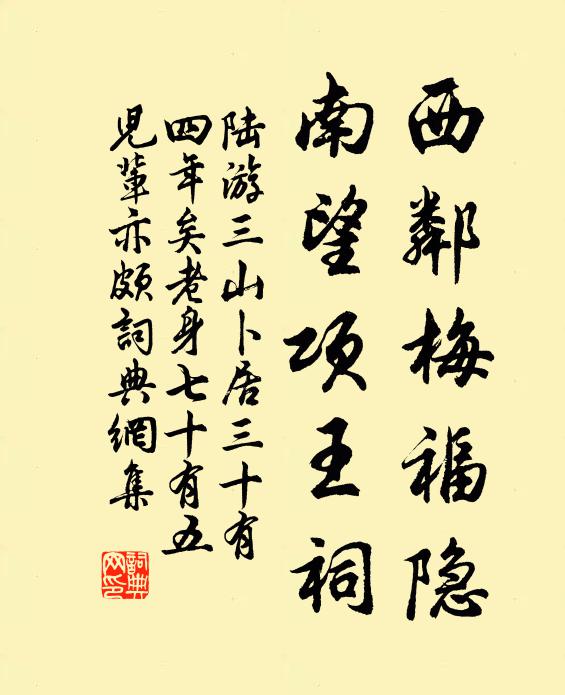 西鄰梅福隐
南望项王祠
陆游三山卜居三十有
四年矣老身七十有五
児輩亦頗詞典網集
詞典
网印